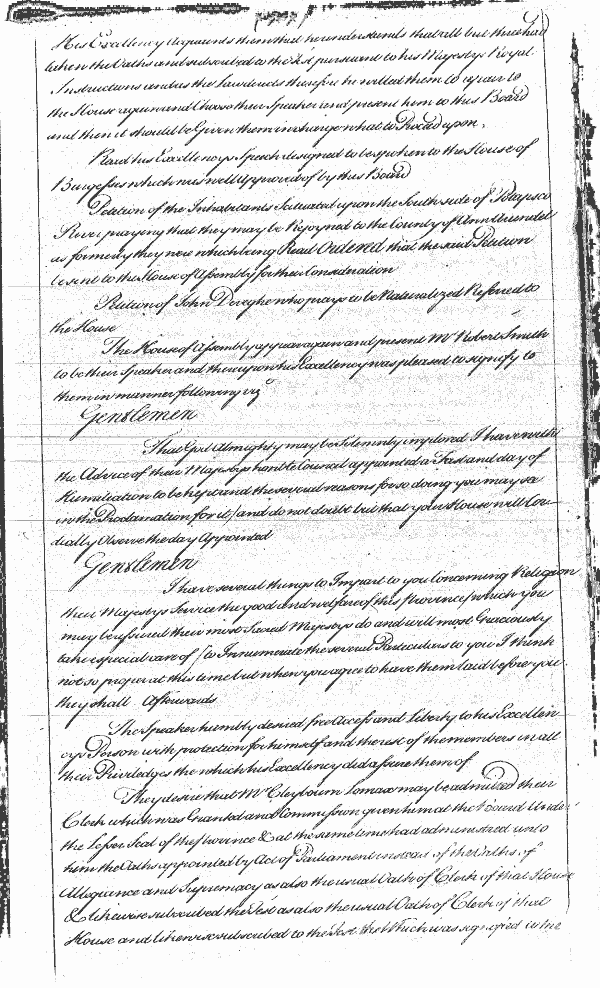 His Excellency acquaints them that he understands that all but three had
taken the Oaths and subscribed to the Test pursuant to his Majestys Royal
Instructions and as the Law directs therefore he willed them to repair to
the House again and Choose their Speaker and present him to this Board
and then it should be Given them in charge what to Proceed upon.
Read his Excellencys Speech designed to be spoken to the House of
Burgesses which was well approved of by this Board
Petition of the Inhabitants Scituated upon the South side of Patapsco
River praying that they may be Rejoyned to the County of Ann Arundel
as formerly they were which being Read Ordered that the said Petition
be sent to the House of Assembly for their Consideration
Petition of John who prays to be Naturalized Referred to
the House
The House of Assembly appear again and present Mr Robert Smith
to be their Speaker and thereupon his Excellency was pleased to signify to
them in manner following viz
Gentlemen
That God Almighty may be Solemnly implored I have with
the Advice of their Majestys honble Council appointed a Fast and day of
Humiliation to be kept and the several reasons for so doing you may see
in the Proclamation for it and do not doubt but that your House will Cor
dially Observe the day Appointed
Gentlemen
I have several things to Impart to you Concerning Religion
their Majestys Service the good and welfare of this Province which you
may be assured their most Sacred Majestys do and will most Graciously
take especial care of (to Innumerate the several Particulars to you I think
not so proper at this time but when you agree to have them laid before you
they shall Afterwards
The Speaker humbly desired free Access and Liberty to his Excellen
cys Person with protection for himself and the rest of the members in all
their Priviledges the which his Excellency did assure them of
They desire that Mr Cleyborn Lomax may be admitted their
Clerk which was Granted and Commission given him at the Board Under
the Lesser Seal of the Province & at the same time had administred unto
him the Oaths appointed by Act of Parliament instead of the Oaths of
Allegiance and Supremacy as also the usual Oath of Clerk of that House
& likewise subscribed the Test as also the usual Oath of Clerk of that
House and likewise subscribed to the Test the Which was signified in the